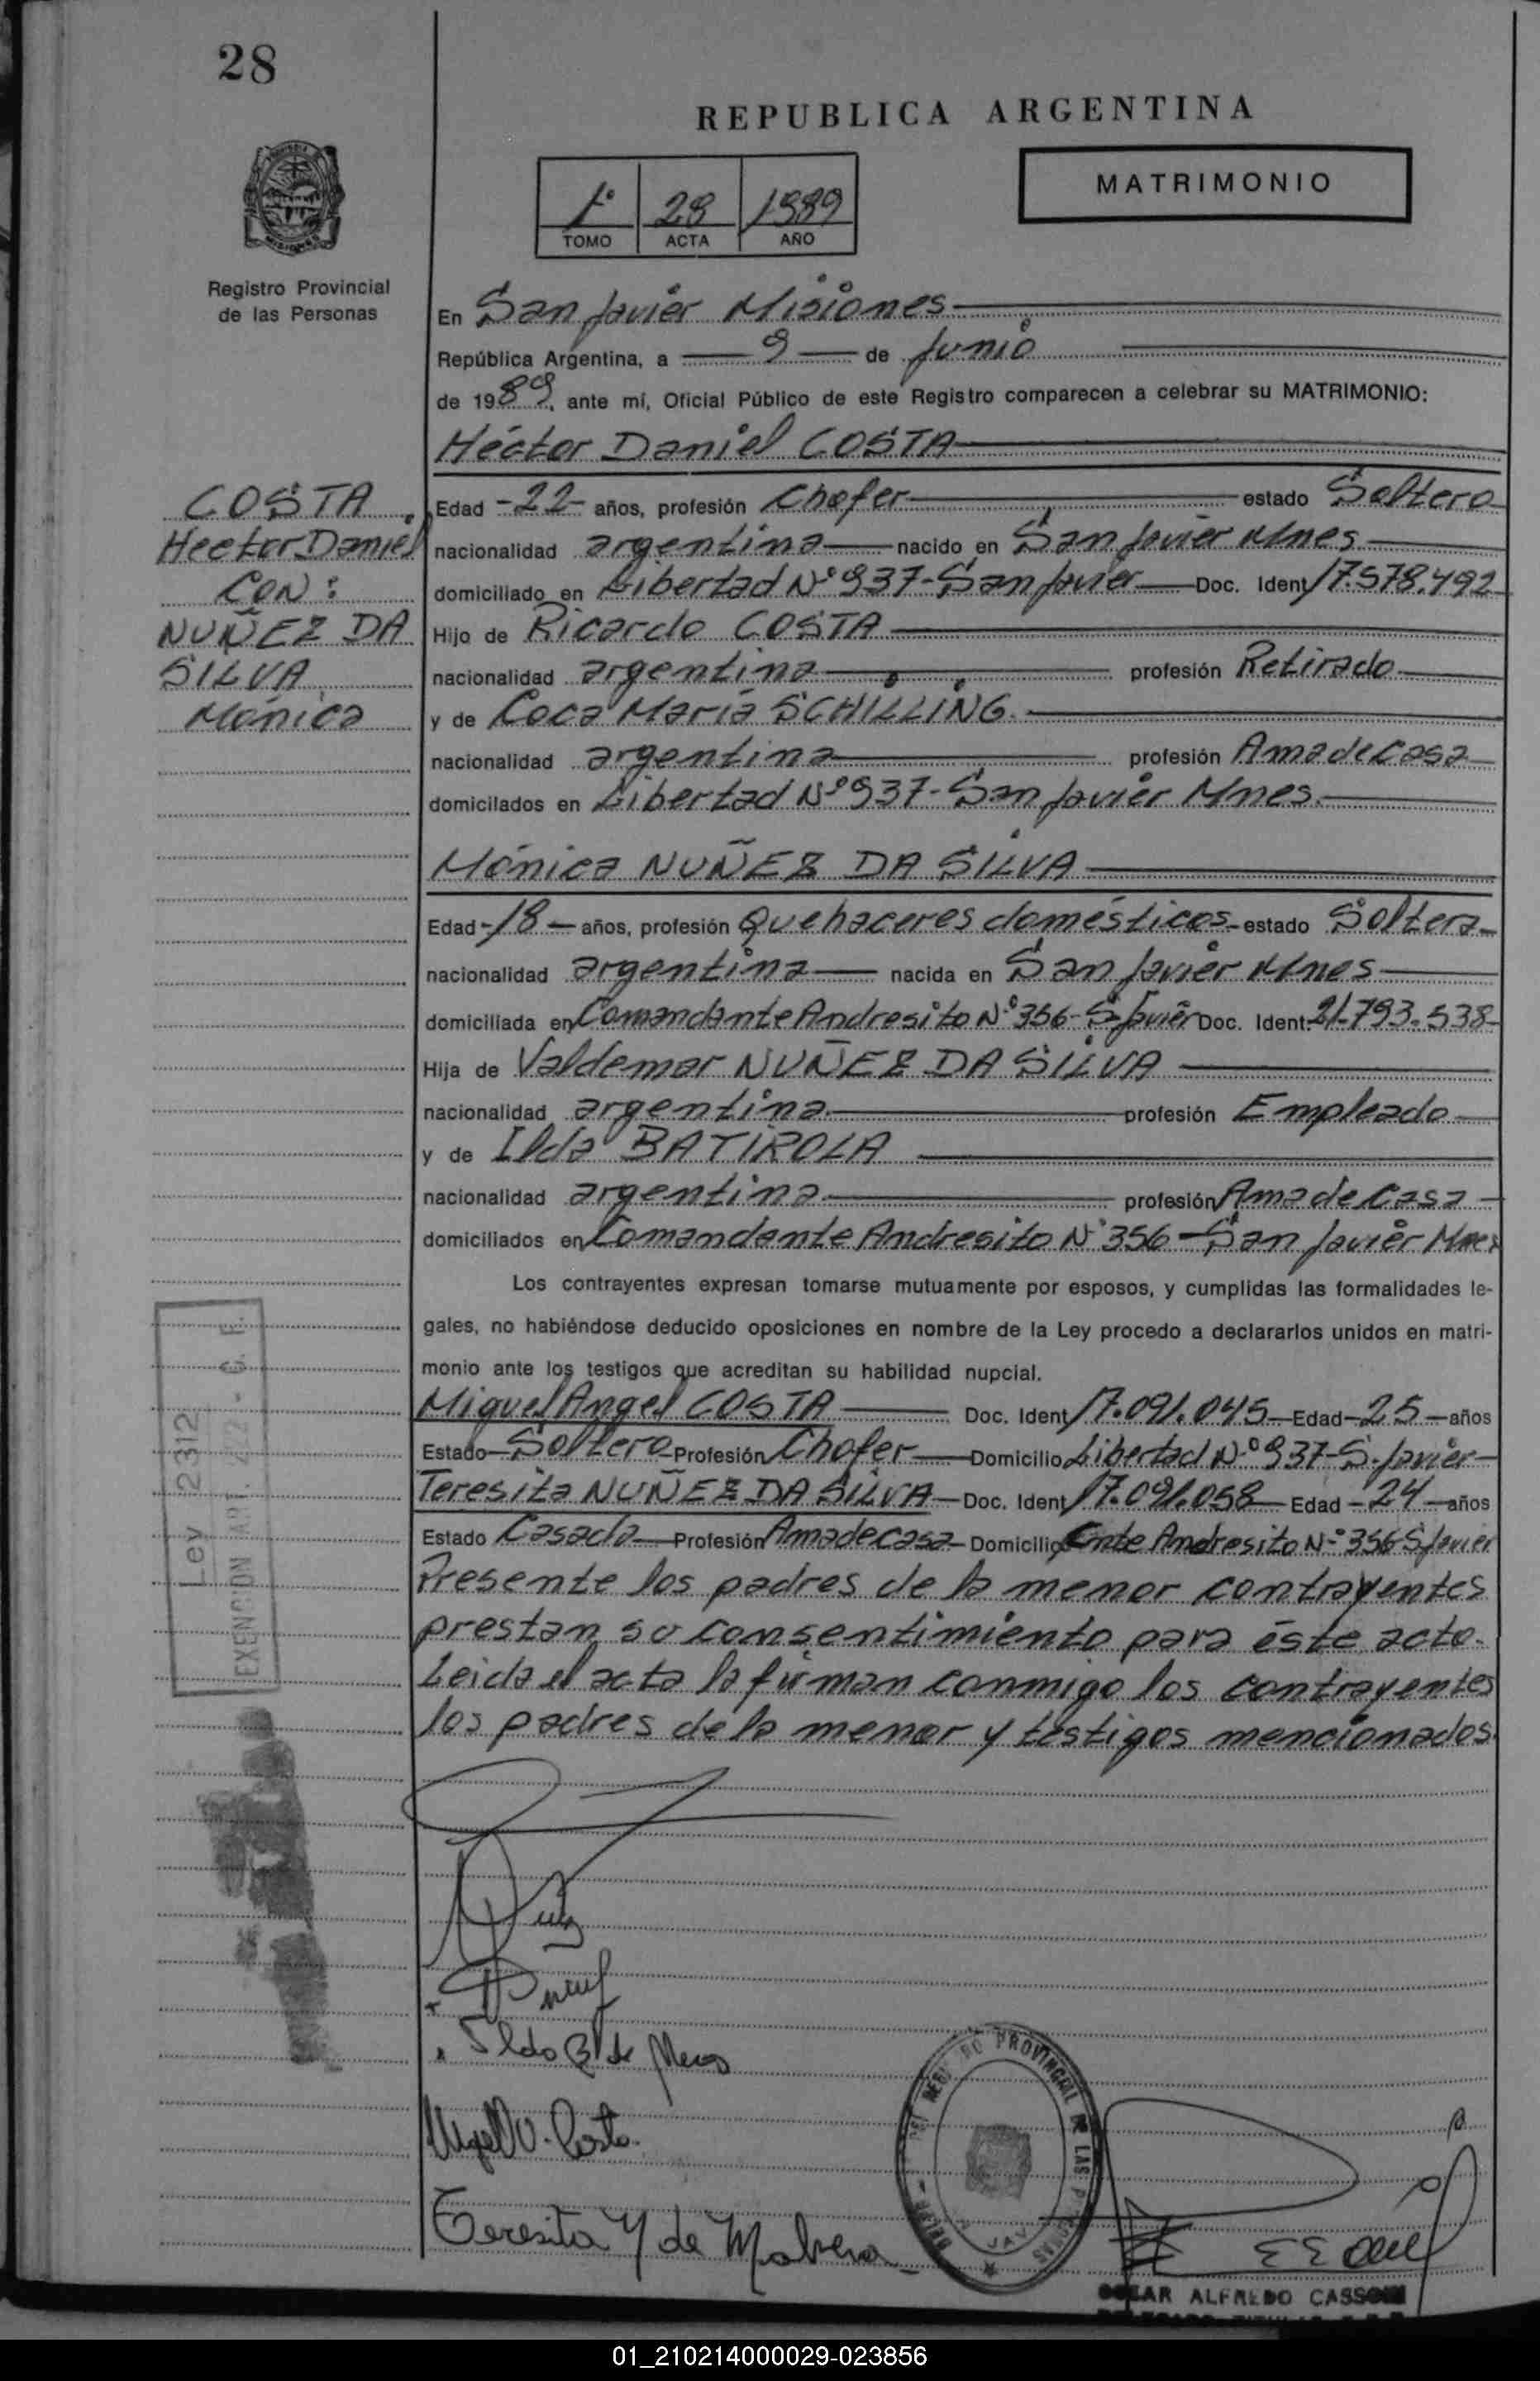 28
REPUBLICA ARGENTINA
1º 28 1989
TOMO ACTA AÑO
MATRIMONIO
Registro Provincial
de las Personas
En San Javier Misiones
República Argentina, a 9 de Junio
de 1989, ante mí, Oficial Público de este Registro comparecen a celebrar su MATRIMONIO:
Héctor Daniel COSTA
COSTA
Hector Daniel
CON:
NUÑEZ DA
SILVA
Mónica
Edad -22- años, profesión Chofer estado Soltero
nacionalidad argentina nacido en San Javier Mnes
domiciliado en Libertad Nº 937-San Javier Doc. Ident 17.578.492
Hijo de Ricardo COSTA
nacionalidad argentina profesión Retirado
y de Coca María SCHILLING.
nacionalidad argentina profesión Ama de casa
domicilados en Libertad Nº 937-San Javier Mnes.
Mónica NUÑEZ DA SILVA
Edad -18- años, profesión Quehaceres domésticos estado Soltera
nacionalidad argentina nacida en San Javier Mnes
domiciliada en Comandante Andresito Nº 356-S. Javier Doc. Ident. 21.793.538
Hija de Valdemar NUÑEZ DA SILVA
nacionalidad argentina profesión Empleado
y de Ilda BATIROLA
nacionalidad argentina profesión Ama de casa
domiciliados en Comandante Andresito Nº 356-San Javier Mnes
Los contrayentes expresan tomarse mutuamente por esposos, y cumplidas las formalidades le-
gales, no habiéndose deducido oposiciones en nombre de la Ley procedo a declararlos unidos en matri-
monio ante los testigos que acreditan su habilidad nupcial.
Miguel Angel COSTA Doc. Ident 17.091.045 Edad-25-años
Estado Soltero Profesión Chofer Domicilio Libertad Nº 937-S. Javier
Teresita NUÑEZ DA SILVA Doc. Ident 17.091.058 Edad-24-años
Estado Casada Profesión Ama de casa Domicilio Cnte Andresito Nº 356 S. Javier
Presente los padres de la menor contrayentes
prestan su consentimiento para éste acto.
Leida el acta la firman conmigo los contrayentes
los padres de la menor y testigos mencionados.
Ley 2312
EXENCION ART.
Ildo B de
Costa
Teresita de
PROVINCIAL DE LAS
ALFREDO
01_210214000029-023856